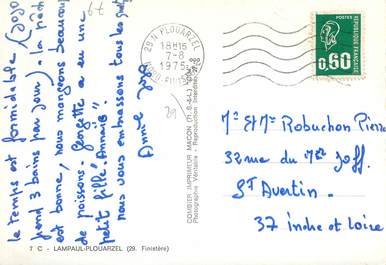 le temps est formidable (Jojo
prend 3 bains par jour). la pêche
est bonne, nous mangeons beaucoup
de poissons. Georgette a eu une
petit fille "Annaïs".
nous vous embrassons tous les quatre
Annie
29 N PLOUARZEL
18H15
7-8
1975
FINISTERE
POSTES
0,60
REPUBLIQUE FRANÇAISE
COMBIER IMPRIMEUR MACON (71. S.-&-L.)
Photographie Véritable - Reproduction Interdite
Mr et Mme Robuchon Pierre
32 rue du Mal Joff.
ST Avertin.
37 Indre et Loire
7 C - LAMPAUL-PLOUARZEL (29. Finistère)